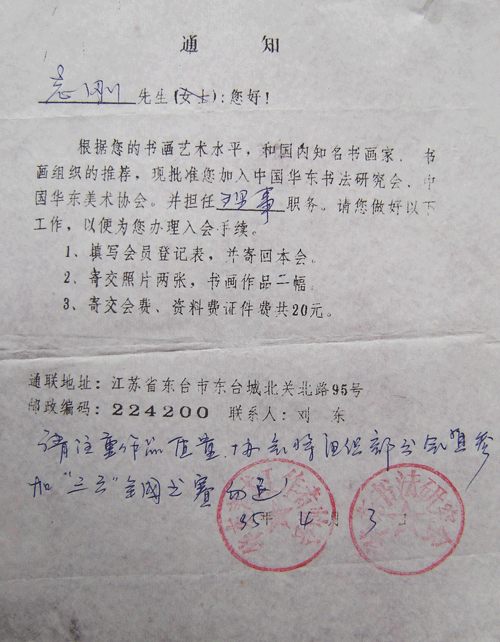 通 知
志刚 先生(女士):您好!
根据您的书画艺术水平,和国内知名书画家、书
画组织的推荐,现批准您加入中国华东书法研究会、中
国华东美术协会。并担任理事职务。请您做好以下
工作,以便为您办理入会手续。
1、填写会员登记表,并寄回本会。
2、寄交照片两张,书画作品二幅。
3、寄交会费、资料费证件费共20元。
通联地址:江苏省东台市东台城北关北路95号
邮政编码:224200 联系人:刘 东
请注重作品质量,协会将组织部分会员参
加“三三”全国书赛勿误!
95年 4 月 3